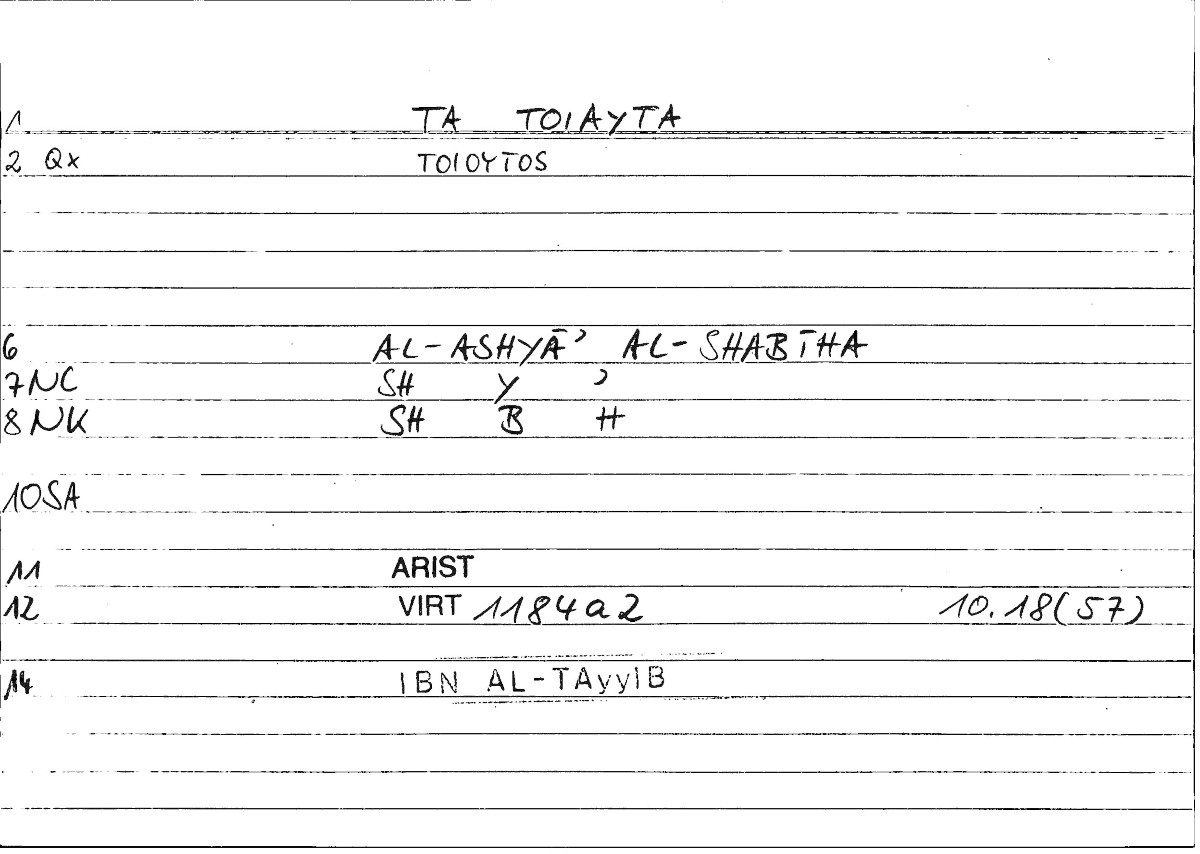 1 TA TOIAYTA
2 Qx TOIOYTOS
6 AL-ASHYĀʾ AL-SHABĪHA
7 NC SH Y ʾ
8 NK SH B H
10 SA
11 ARIST
12 VIRT 1184a2 10.18(57)
14 IBN AL-TAyyIB